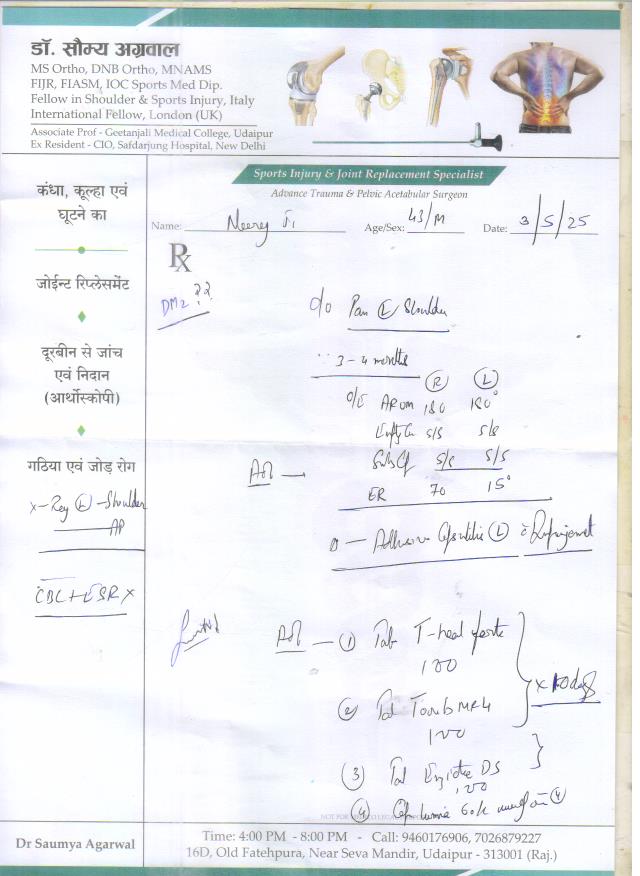 डॉ. सौम्य अग्रवाल
MS Ortho, DNB Ortho, MNAMS
FIJR, FIASM, IOC Sports Med Dip.
Fellow in Shoulder & Sports Injury, Italy
International Fellow, London (UK)
Associate Prof - Geetanjali Medical College, Udaipur
Ex Resident - CIO, Safdarjung Hospital, New Delhi
Sports Injury & Joint Replacement Specialist
Advance Trauma & Pelvic Acetabular Surgeon
Name: Neeraj Ji Age/Sex: 43/M Date: 3/5/25
Rx
कंधा, कूल्हा एवं
घूटने का
जोईन्ट रिप्लेसमेंट
दूरबीन से जांच
एवं निदान
(आर्थोस्कोपी)
गठिया एवं जोड़ रोग
X-Ray (L) - Shoulder
AP
CBC + ESR
DM2 ??
c/o Pain (L) Shoulder
3-4 months
(R) (L)
o/e AROM 180 180°
5/5 5/5
5/5 5/5
ER 70 15°
Adv
Adhesive (L)
Adv - (1) Tab T-heal forte
100
(2) Tab MR4
100
x 10 days
(3) Tab DS
100
(4) 60k
Dr Saumya Agarwal
Time: 4:00 PM - 8:00 PM - Call: 9460176906, 7026879227
16D, Old Fatehpura, Near Seva Mandir, Udaipur - 313001 (Raj.)